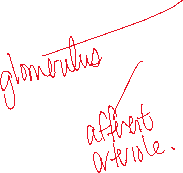 glomerulus
afferent
arteriole.